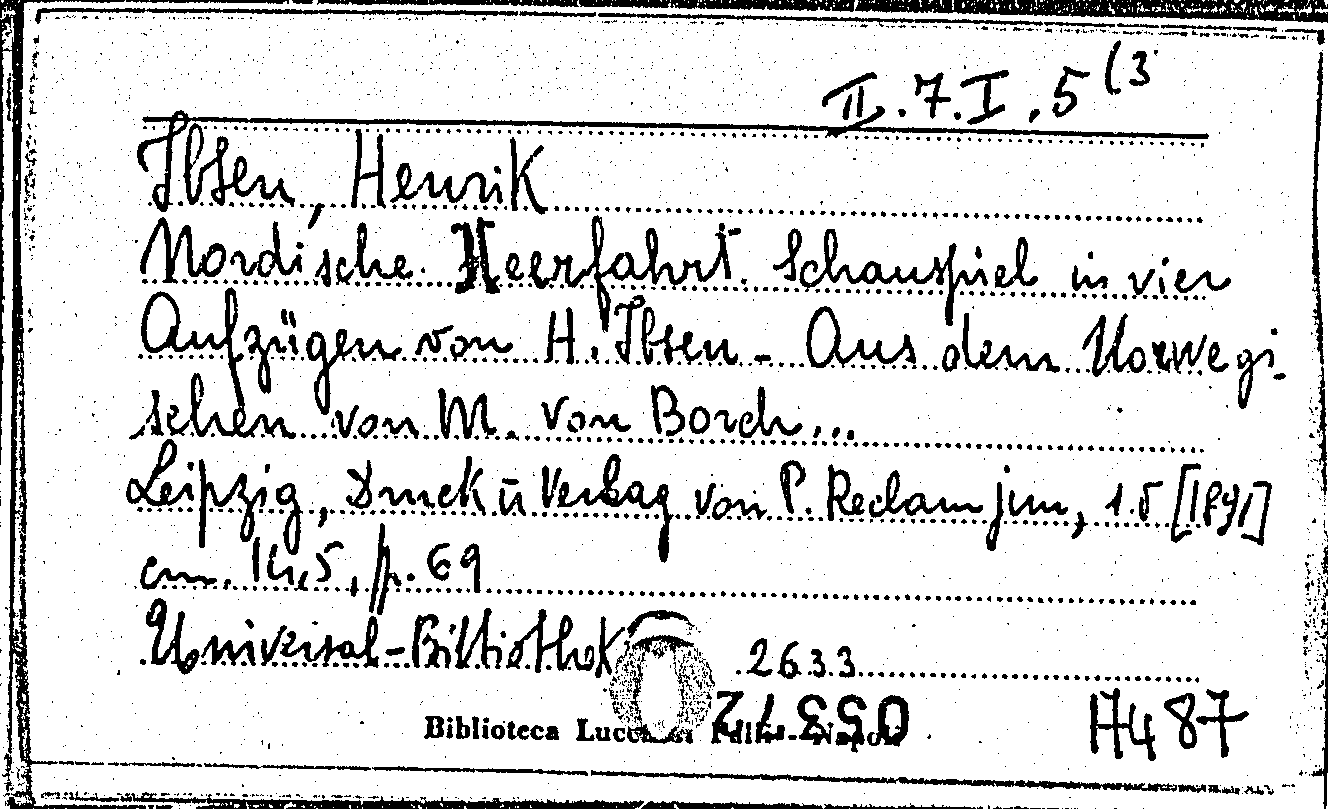 II.7.I.5(3
Ibsen, Henrik
Nordische Heerfahrt. Schauspiel in vier
Aufzügen von H. Ibsen - Aus dem Norwegi-
schen von M. von Borch...
Leipzig, Druck u Verlag von P. Reclam jun, 1.5 [1891]
cm. 14,5, p. 69
Universal-Bibliothek 2633
Biblioteca 05372
17487